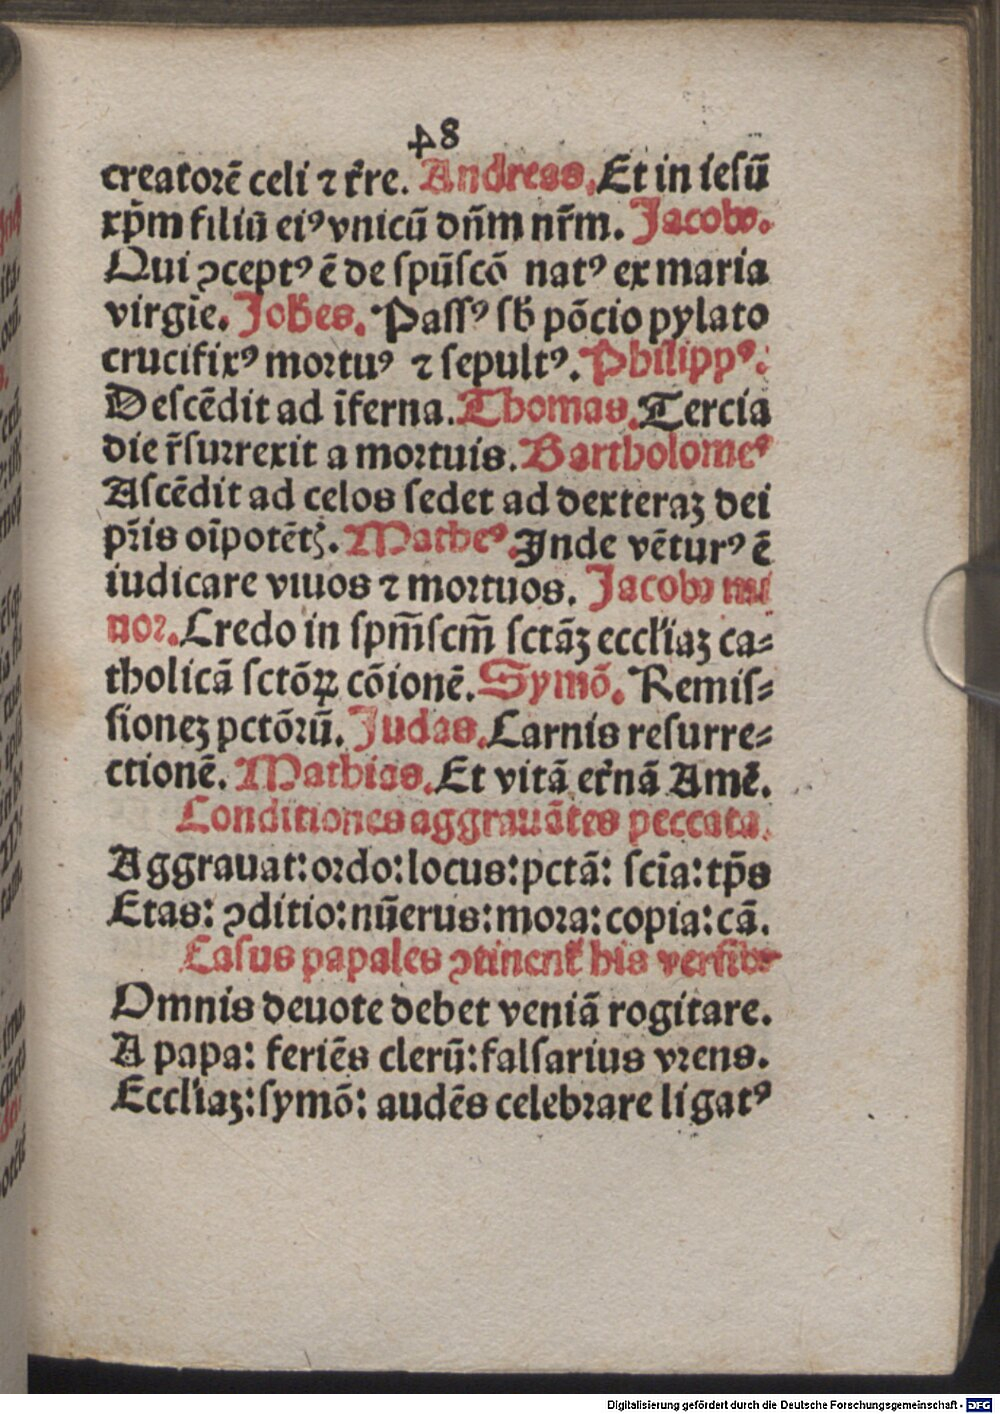 48
creatorē celi ⁊ t̄re. Andreas. Et in iesū
xp̄m filiū eiꝰ vnicū dn̄m nr̄m. Jacobꝰ.
Qui ꝯceptꝰ ē de spūscō natꝰ ex maria
virgīe. Joh̄es. Passꝰ sb̄ pōcio pylato
crucifixꝰ mortuꝰ ⁊ sepultꝰ. Philippꝰ.
Descēdit ad īferna. Thomas. Tercia
die r̄surrexit a mortuis. Bartholomeꝰ
Ascēdit ad celos sedet ad dexteraꝫ dei
pr̄is oīpotētꝭ. Matheꝰ. Inde vēturꝰ ē
iudicare viuos ⁊ mortuos. Jacobꝰ mi
nor. Credo in spm̄scm̄ sctāꝫ eccl'iaꝫ ca⸗
tholicā sctōꝝ cōionē. Symō. Remis⸗
sioneꝫ pctōrū. Judas. Carnis resurre⸗
ctionē. Mathias. Et vitā et̄nā Amē.
Conditiones aggrauātes peccata.
Aggrauat: ordo: locus: pctā: scīa: tp̄s
Etas: ꝯditio: nūerus: mora: copia: cā.
Casus papales ꝯtinent̄ his versibꝰ
Omnis deuote debet veniā rogitare.
A papa: feriēs clerū: falsarius vrens.
Eccl'iaꝫ: symō: audēs celebrare ligatꝰ
Digitalisierung gefördert durch die Deutsche Forschungsgemeinschaft - DFG